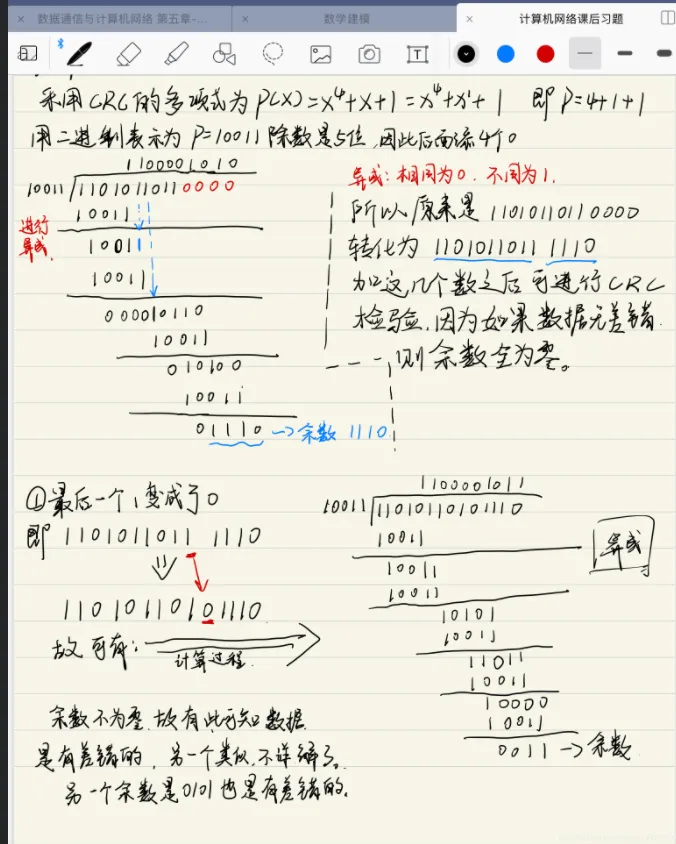 数据通信与计算机网络 第五章-...
数学建模
计算机网络课后习题
采用CRC的多项式为P(X)=X⁴+X+1=X⁴+X¹+1 即P=4+1+1
用二进制表示为 P=10011 除数是5位,因此后面添4个0
1100001010
10011
11010110110000
进行
异或
10011
10011
10011
000010110
10011
010100
10011
01110 → 余数 1110
异或:相同为0,不同为1.
所以原来是 11010110110000
转化为 1101011011 1110
加这几个数之后可进行CRC
检验,因为如果数据无差错
则余数全为零。
①最后一个1变成了0
即 1101011011 1110
11010110101110
故可有:
计算过程
余数不为零,故有此可知数据
是有差错的,另一个类似,不详解了。
另一个余数是0101也是有差错的.
1100001011
10011
11010110101110
10011
10011
10011
10101
10011
11011
10011
10000
10011
0011 → 余数
异或